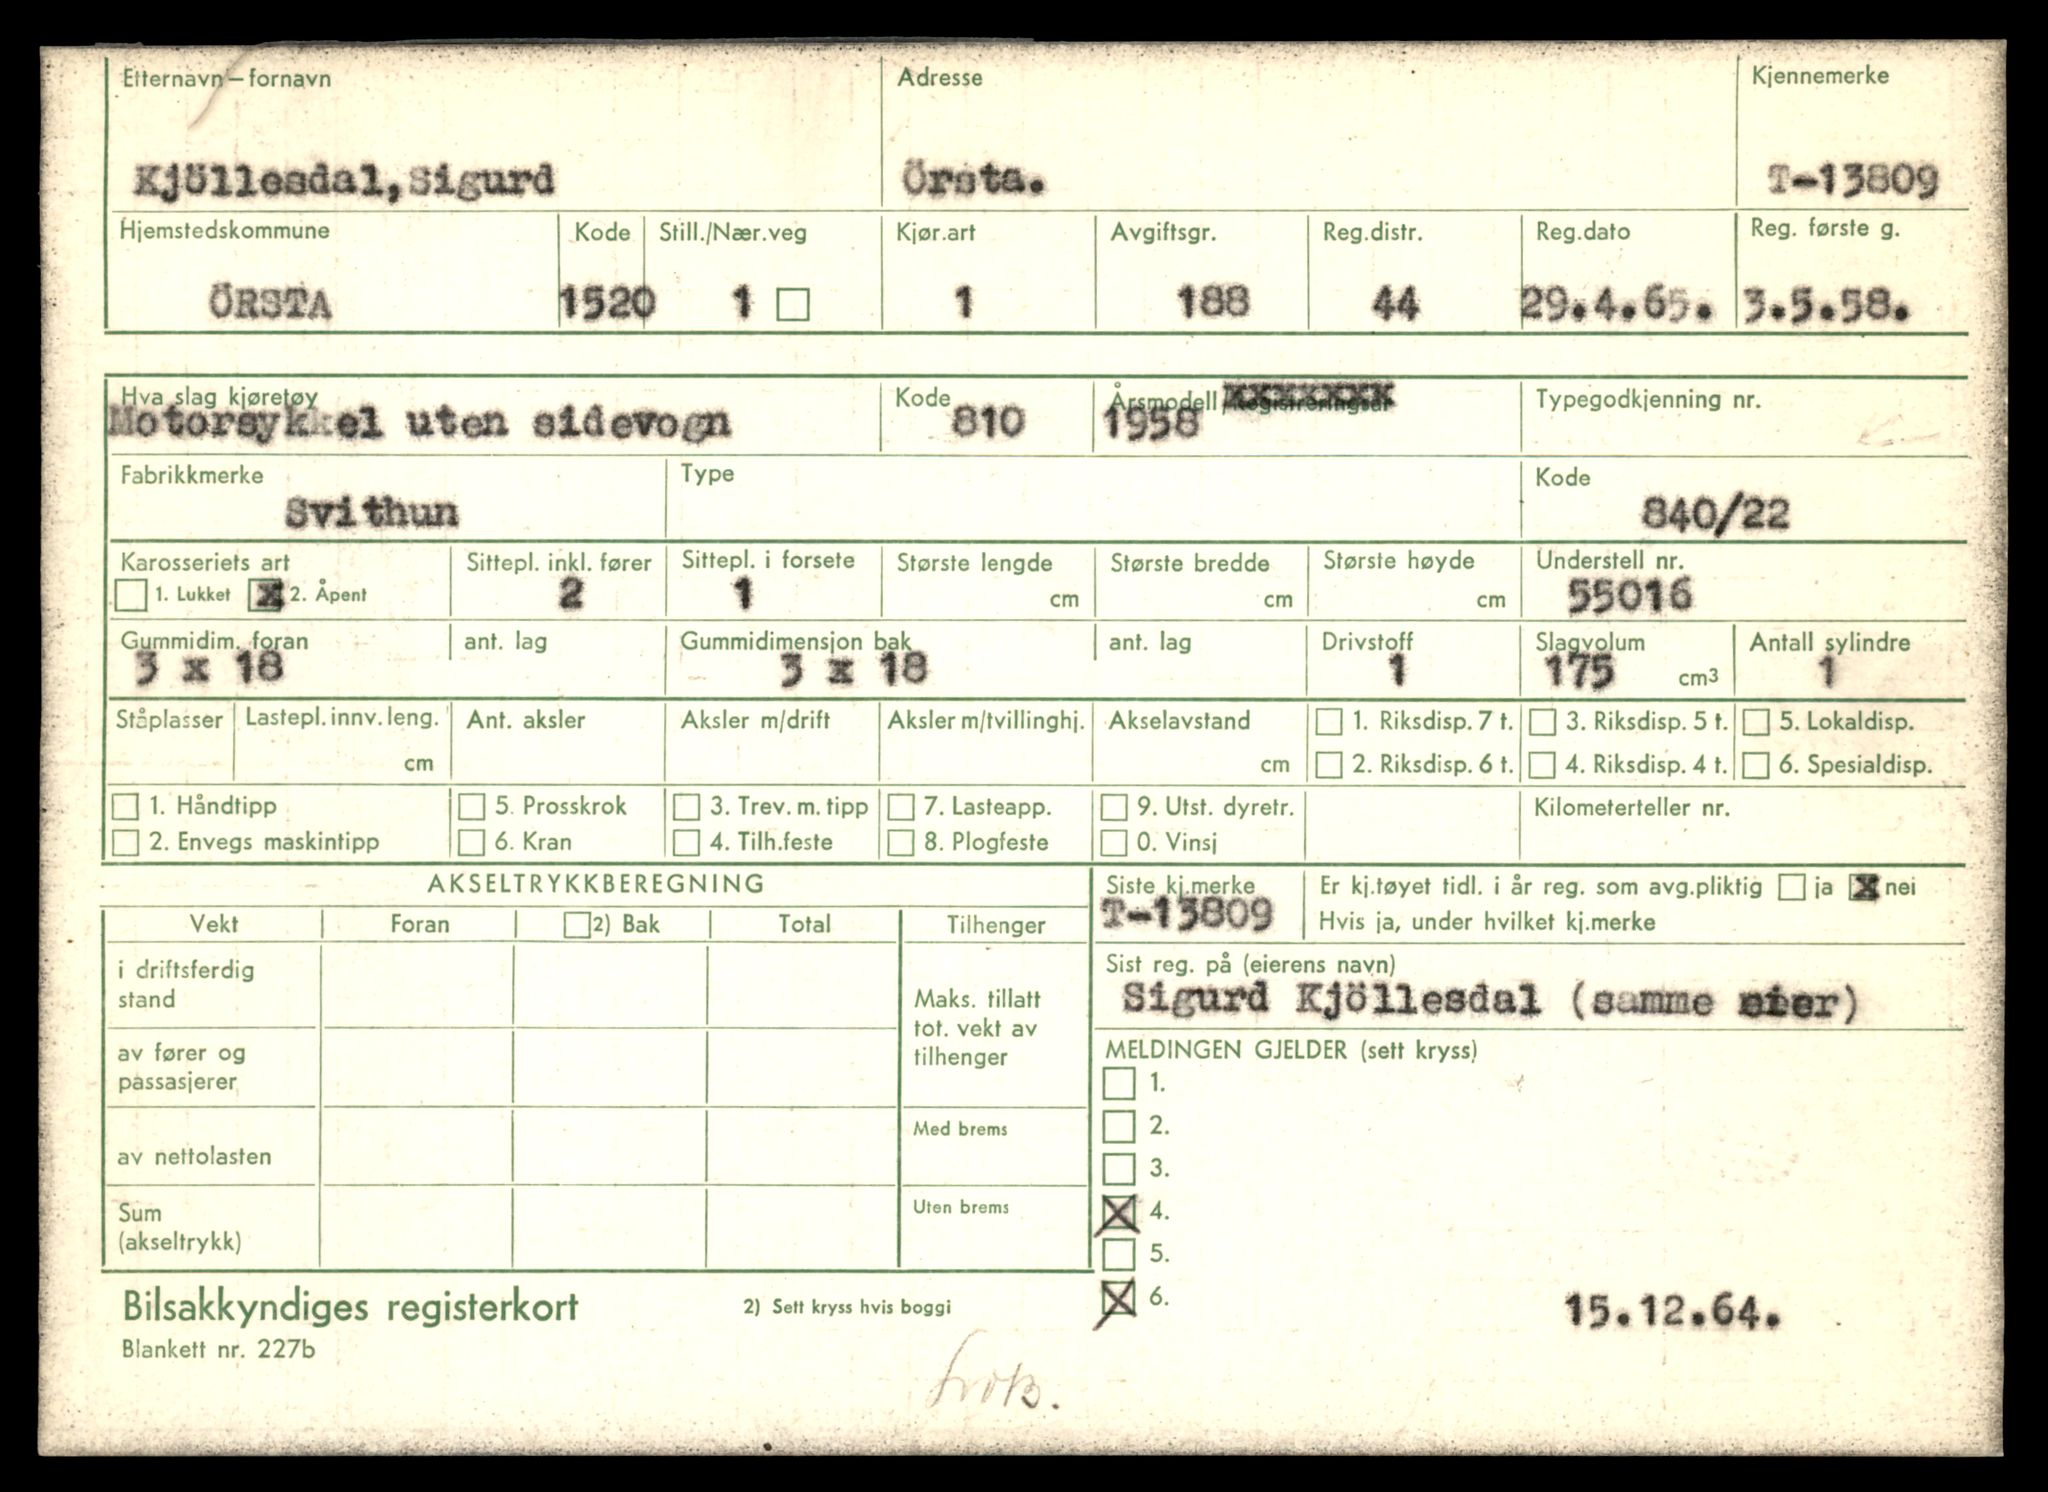 Etternavn – fornavn Adresse Kjennemerke
Kjöllesdal, Sigurd Örsta. T-13809
Hjemstedskommune Kode Still./Nær.veg Kjør.art Avgiftsgr. Reg.distr. Reg.dato Reg. første g.
ÖRSTA 1520 1 1 188 44 29.4.65. 3.5.58.
Hva slag kjøretøy Kode Årsmodell/Registreringsår Typegodkjenning nr.
Motorsykkel uten sidevogn 810 1958
Fabrikkmerke Type Kode
Svithun 840/22
Karosseriets art Sittepl. inkl. fører Sittepl. i forsete Største lengde Største bredde Største høyde Understell nr.
1. Lukket x 2. Åpent 2 1 cm cm cm 55016
Gummidim. foran ant. lag Gummidimensjon bak ant. lag Drivstoff Slagvolum Antall sylindre
3 x 18 3 x 18 1 175 cm3 1
Ståplasser Lastepl. innv. leng. Ant. aksler Aksler m/drift Aksler m/tvillinghj. Akselavstand 1. Riksdisp. 7 t. 3. Riksdisp. 5 t. 5. Lokaldisp.
cm cm 2. Riksdisp. 6 t. 4. Riksdisp. 4 t. 6. Spesialdisp.
1. Håndtipp 5. Prosskrok 3. Trev. m. tipp 7. Lasteapp. 9. Utst. dyretr. Kilometerteller nr.
2. Envegs maskintipp 6. Kran 4. Tilh.feste 8. Plogfeste 0. Vinsj
AKSELTRYKKBEREGNING Siste kj.merke Er kj.tøyet tidl. i år reg. som avg.pliktig ja x nei
T-13809 Hvis ja, under hvilket kj.merke
Vekt Foran 2) Bak Total Tilhenger
Sist reg. på (eierens navn)
i driftsferdig
stand
Sigurd Kjöllesdal (samme eier)
Maks. tillatt
tot. vekt av
tilhenger
MELDINGEN GJELDER (sett kryss)
av fører og
passasjerer
1.
2.
Med brems
av nettolasten
3.
4.
Uten brems
Sum
(akseltrykk)
5.
6. 15.12.64.
Bilsakkyndiges registerkort 2) Sett kryss hvis boggi
Blankett nr. 227b